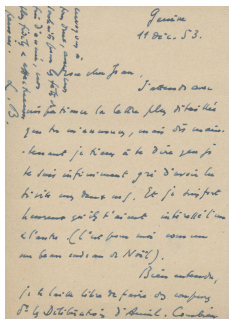 Genève
11 Déc. 53.
Mon cher Jean.
J'attends avec
impatience la lettre plus détaillée
que tu m'annonces, mais dès main-
tenant je tiens à te dire que je
te suis infiniment gré d'avoir lu
si vite mes deux mss. Et je suis fort
heureux qu'ils t'aient intéressé l'un
& l'autre. (C'est pour moi comme
un beau cadeau de Noël).
Bien entendu,
je te laisse libre de faire des coupures
ds la Délibération d'Amiel. Combien
L. B.